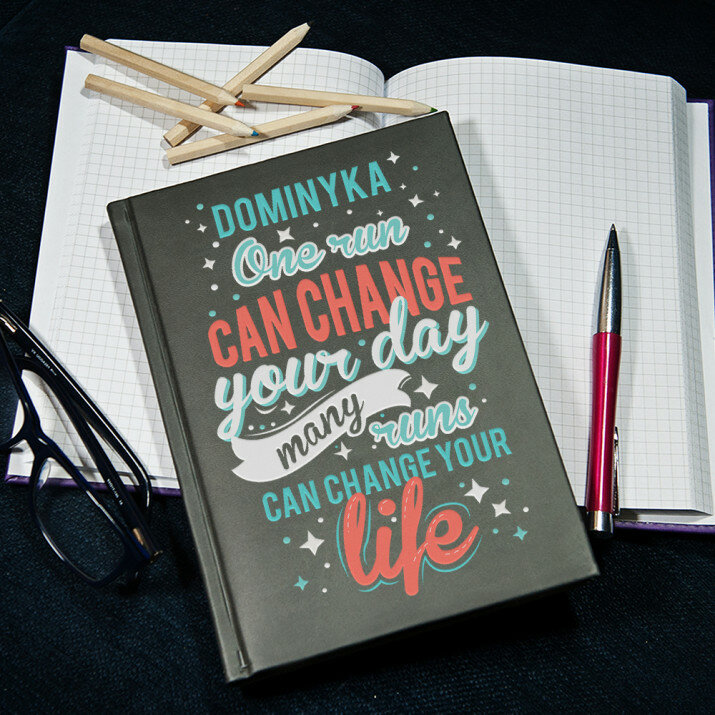 DOMINYKA
One run
CAN CHANGE
your day
many runs
CAN CHANGE YOUR
life